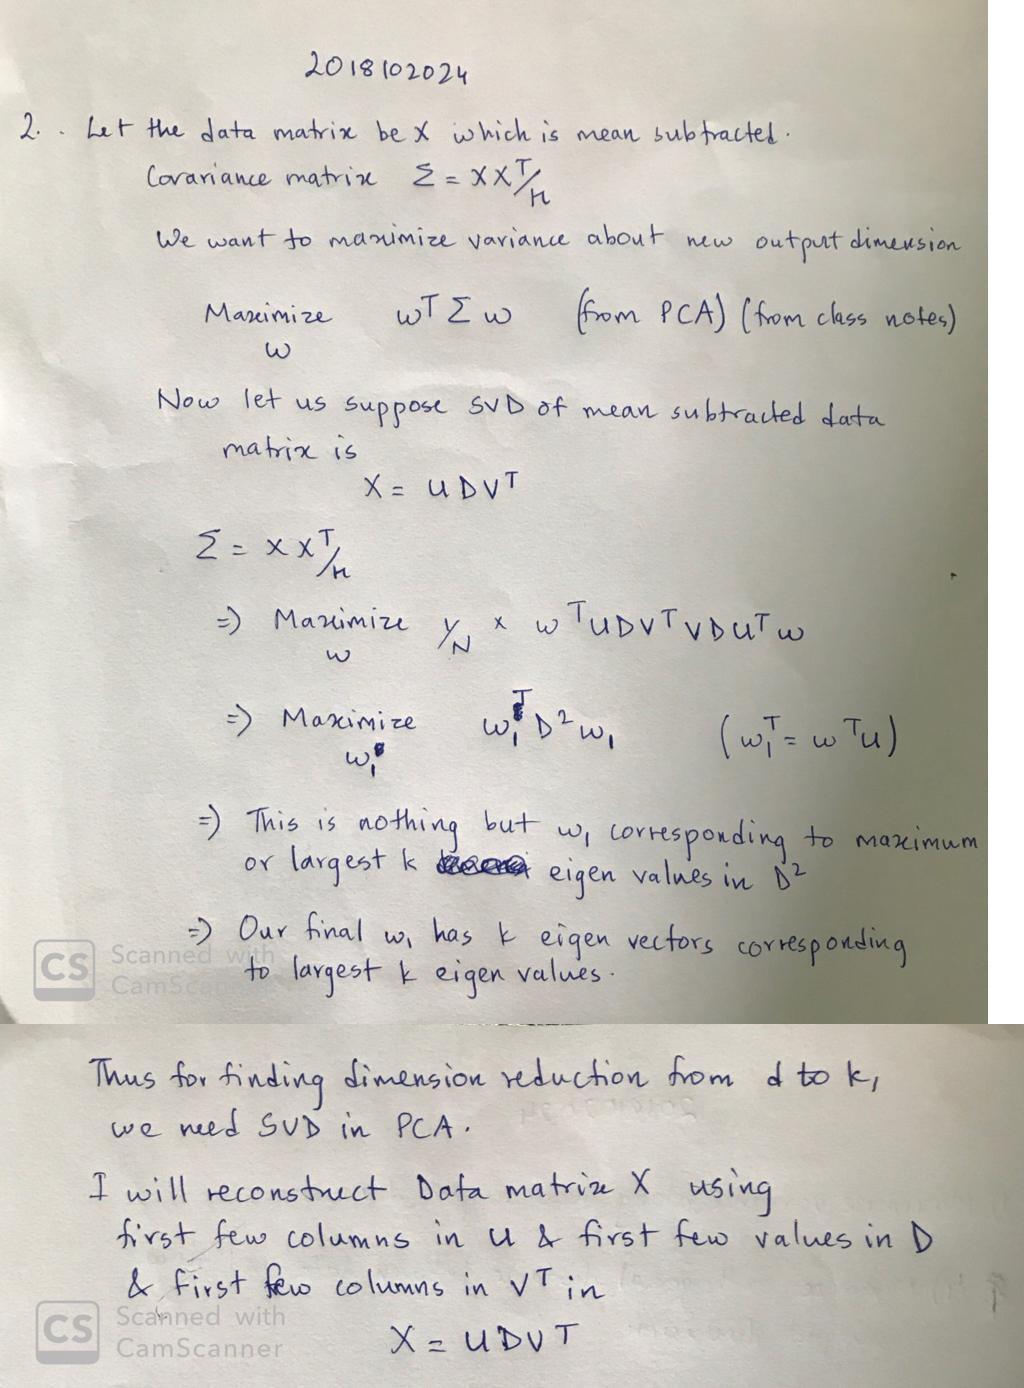 2018102024
2. . Let the data matrix be X which is mean subtracted.
Covariance matrix Σ = XXᵀ/n
We want to maximize variance about new output dimension
Maximize wᵀ Σ w (from PCA) (from class notes)
w
Now let us suppose SVD of mean subtracted data
matrix is
X = UDVᵀ
Σ = XXᵀ/n
=) Maximize 1/N x wᵀUDVᵀVDUᵀw
w
=) Maximize w₁ᵀ D² w₁ (w₁ᵀ = wᵀU)
w₁
=) This is nothing but w₁ corresponding to maximum
or largest k eigen values in D²
=) Our final w₁ has k eigen vectors corresponding
to largest k eigen values.
CS Scanned with
CamScanner
Thus for finding dimension reduction from d to k,
we need SVD in PCA.
I will reconstruct Data matrix X using
first few columns in U & first few values in D
& first few columns in Vᵀ in
X = UDVᵀ
CS Scanned with
CamScanner